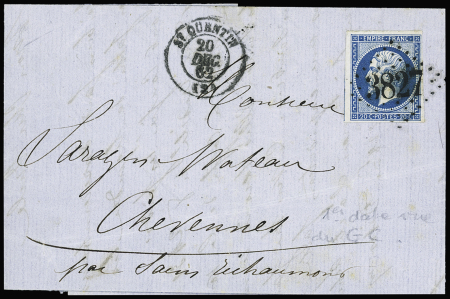 ST QUENTIN
20
DEC.
62
(2)
EMPIRE FRANC.
3827
20 C. POSTES 20 C.
Monsieur
Sarazin-Wateau
Chevennes
1ère date vue
du GC.
par Sains Richaumont